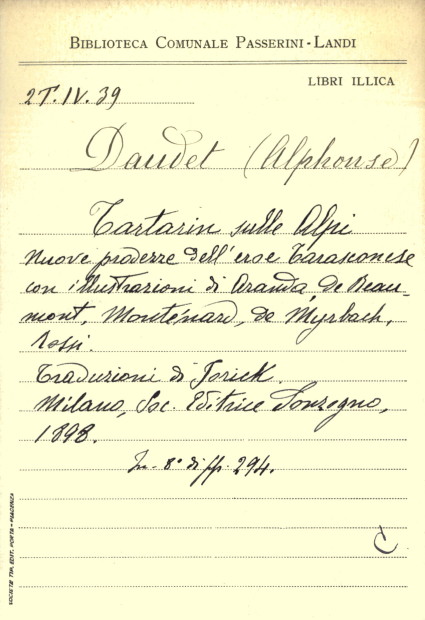 BIBLIOTECA COMUNALE PASSERINI-LANDI
LIBRI ILLICA
2T.IV.39
Daudet (Alphonse)
Tartarin sulle Alpi
Nuove prodezze dell'eroe Tarasconese
con illustrazioni di Aranda, de Beau-
mont, Monténard, de Myrbach,
Rossi.
Traduzioni di Jorick.
Milano, Soc. Editrice Sonzogno,
1898.
In-8° di pp. 294.
C
SOCIETÀ TIP. EDIT. PORTA - PIACENZA